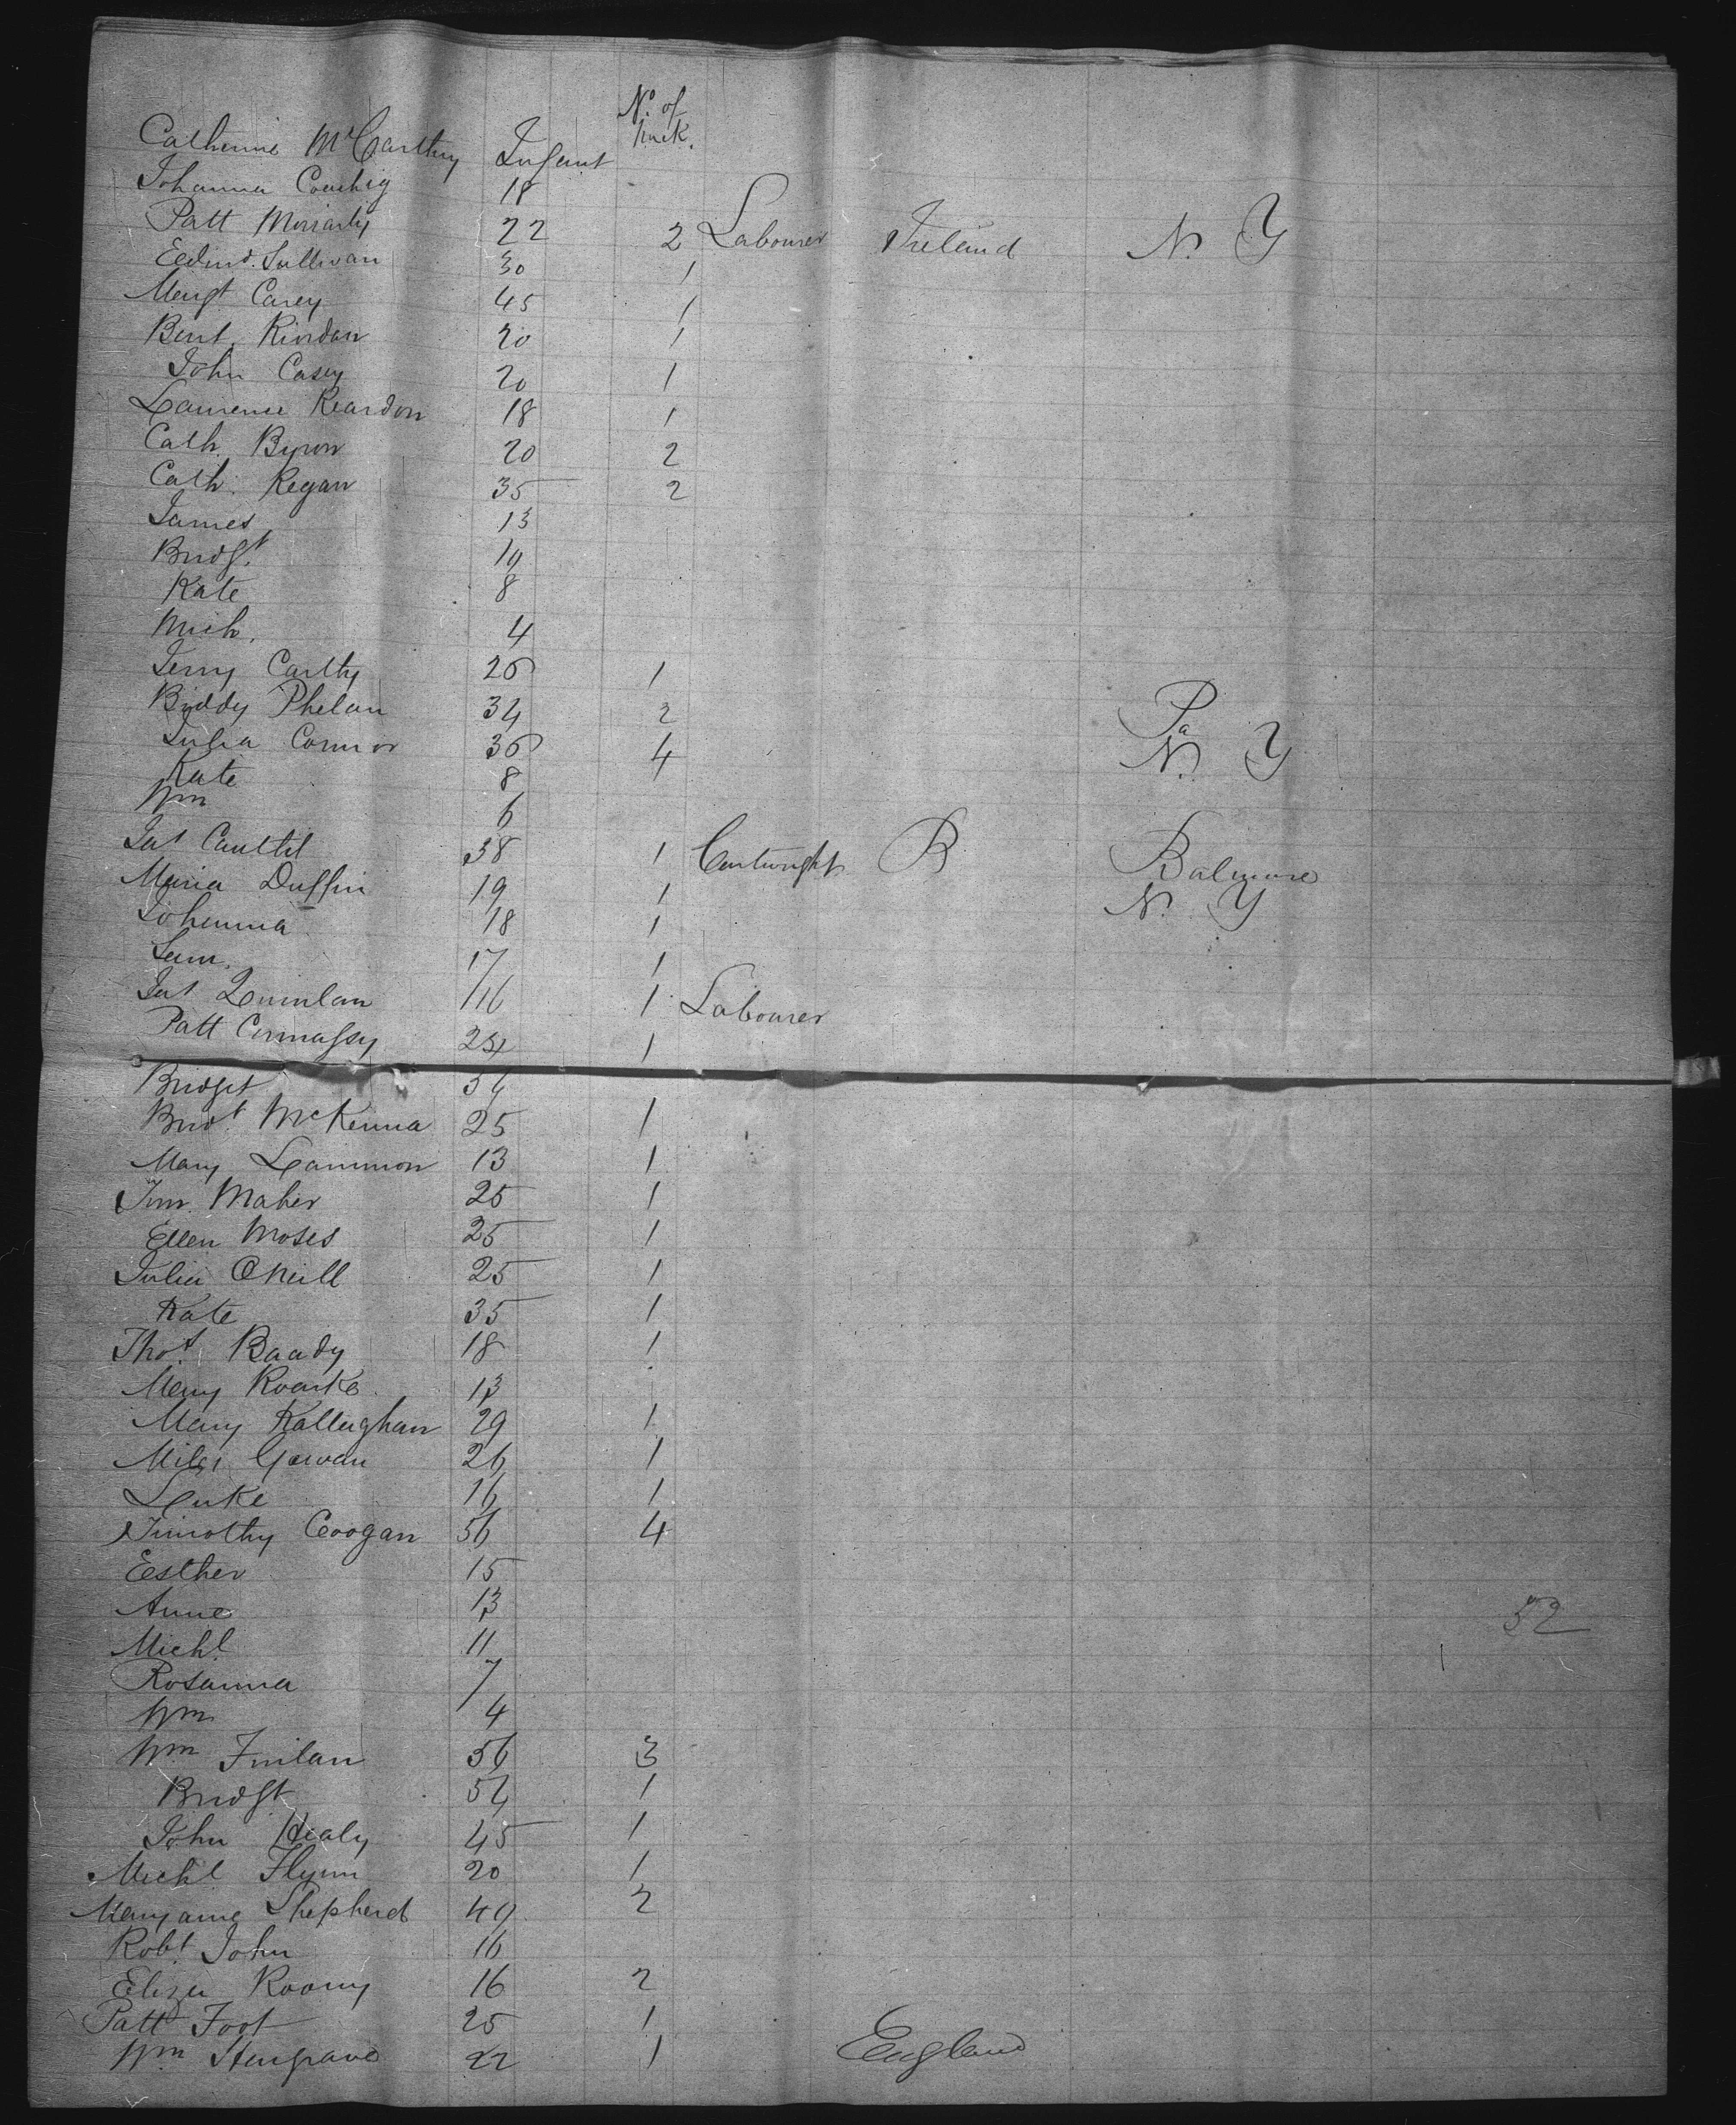 No. of
pack.
Catherine McCarthy Infant
Johanna Coachig 18
Patt Moriarty 22 2 Labourer Ireland N. Y
Edmd. Sullivan 30 1
Margt Carey 45 1
Bent. Rindan 20 1
John Casey 20 1
Laurence Reardon 18 1
Cath. Byron 20 2
Cath. Regan 35 2
James 13
Bridgt.
Kate 8
Mich. 4
Jerry Carthy 26 1
Biddy Phelan 34 2 Pa
Julia Connor 36 4 N. Y
Kate 8
Wm 6
Jas 38 1 Cartwright B Balmore
Maria Duffin 19 1 N. Y
Johanna 18 1
Sam. 17 1
Jas Quinlan 16 1 Labourer
Patt Connassy 24 1
Bridget 54
Bridt. McKenna 25 1
Mary Lammon 13 1
Jim. Maher 25 1
Ellen Moses 25 1
Julia ONeill 25 1
Kate 35 1
Thos. Baady 18 1
Mary Roarke 13
Mary Kallaghan 29 1
Miles Garvan 26 1
Luke 16 1
Timothy Coogan 56 4
Esther 15
Anne 13 52
Michl. 11
Rosanna 7
Wm 4
Wm Finlan 56 3
Bridgt 54 1
John Healy 45 1
Michl Flynn 20 1
Maryanne Shepherd 49 2
Robt John 16
Eliza Roony 16 2
Patt Foot 25 1
Wm Hargrave 22 1 England